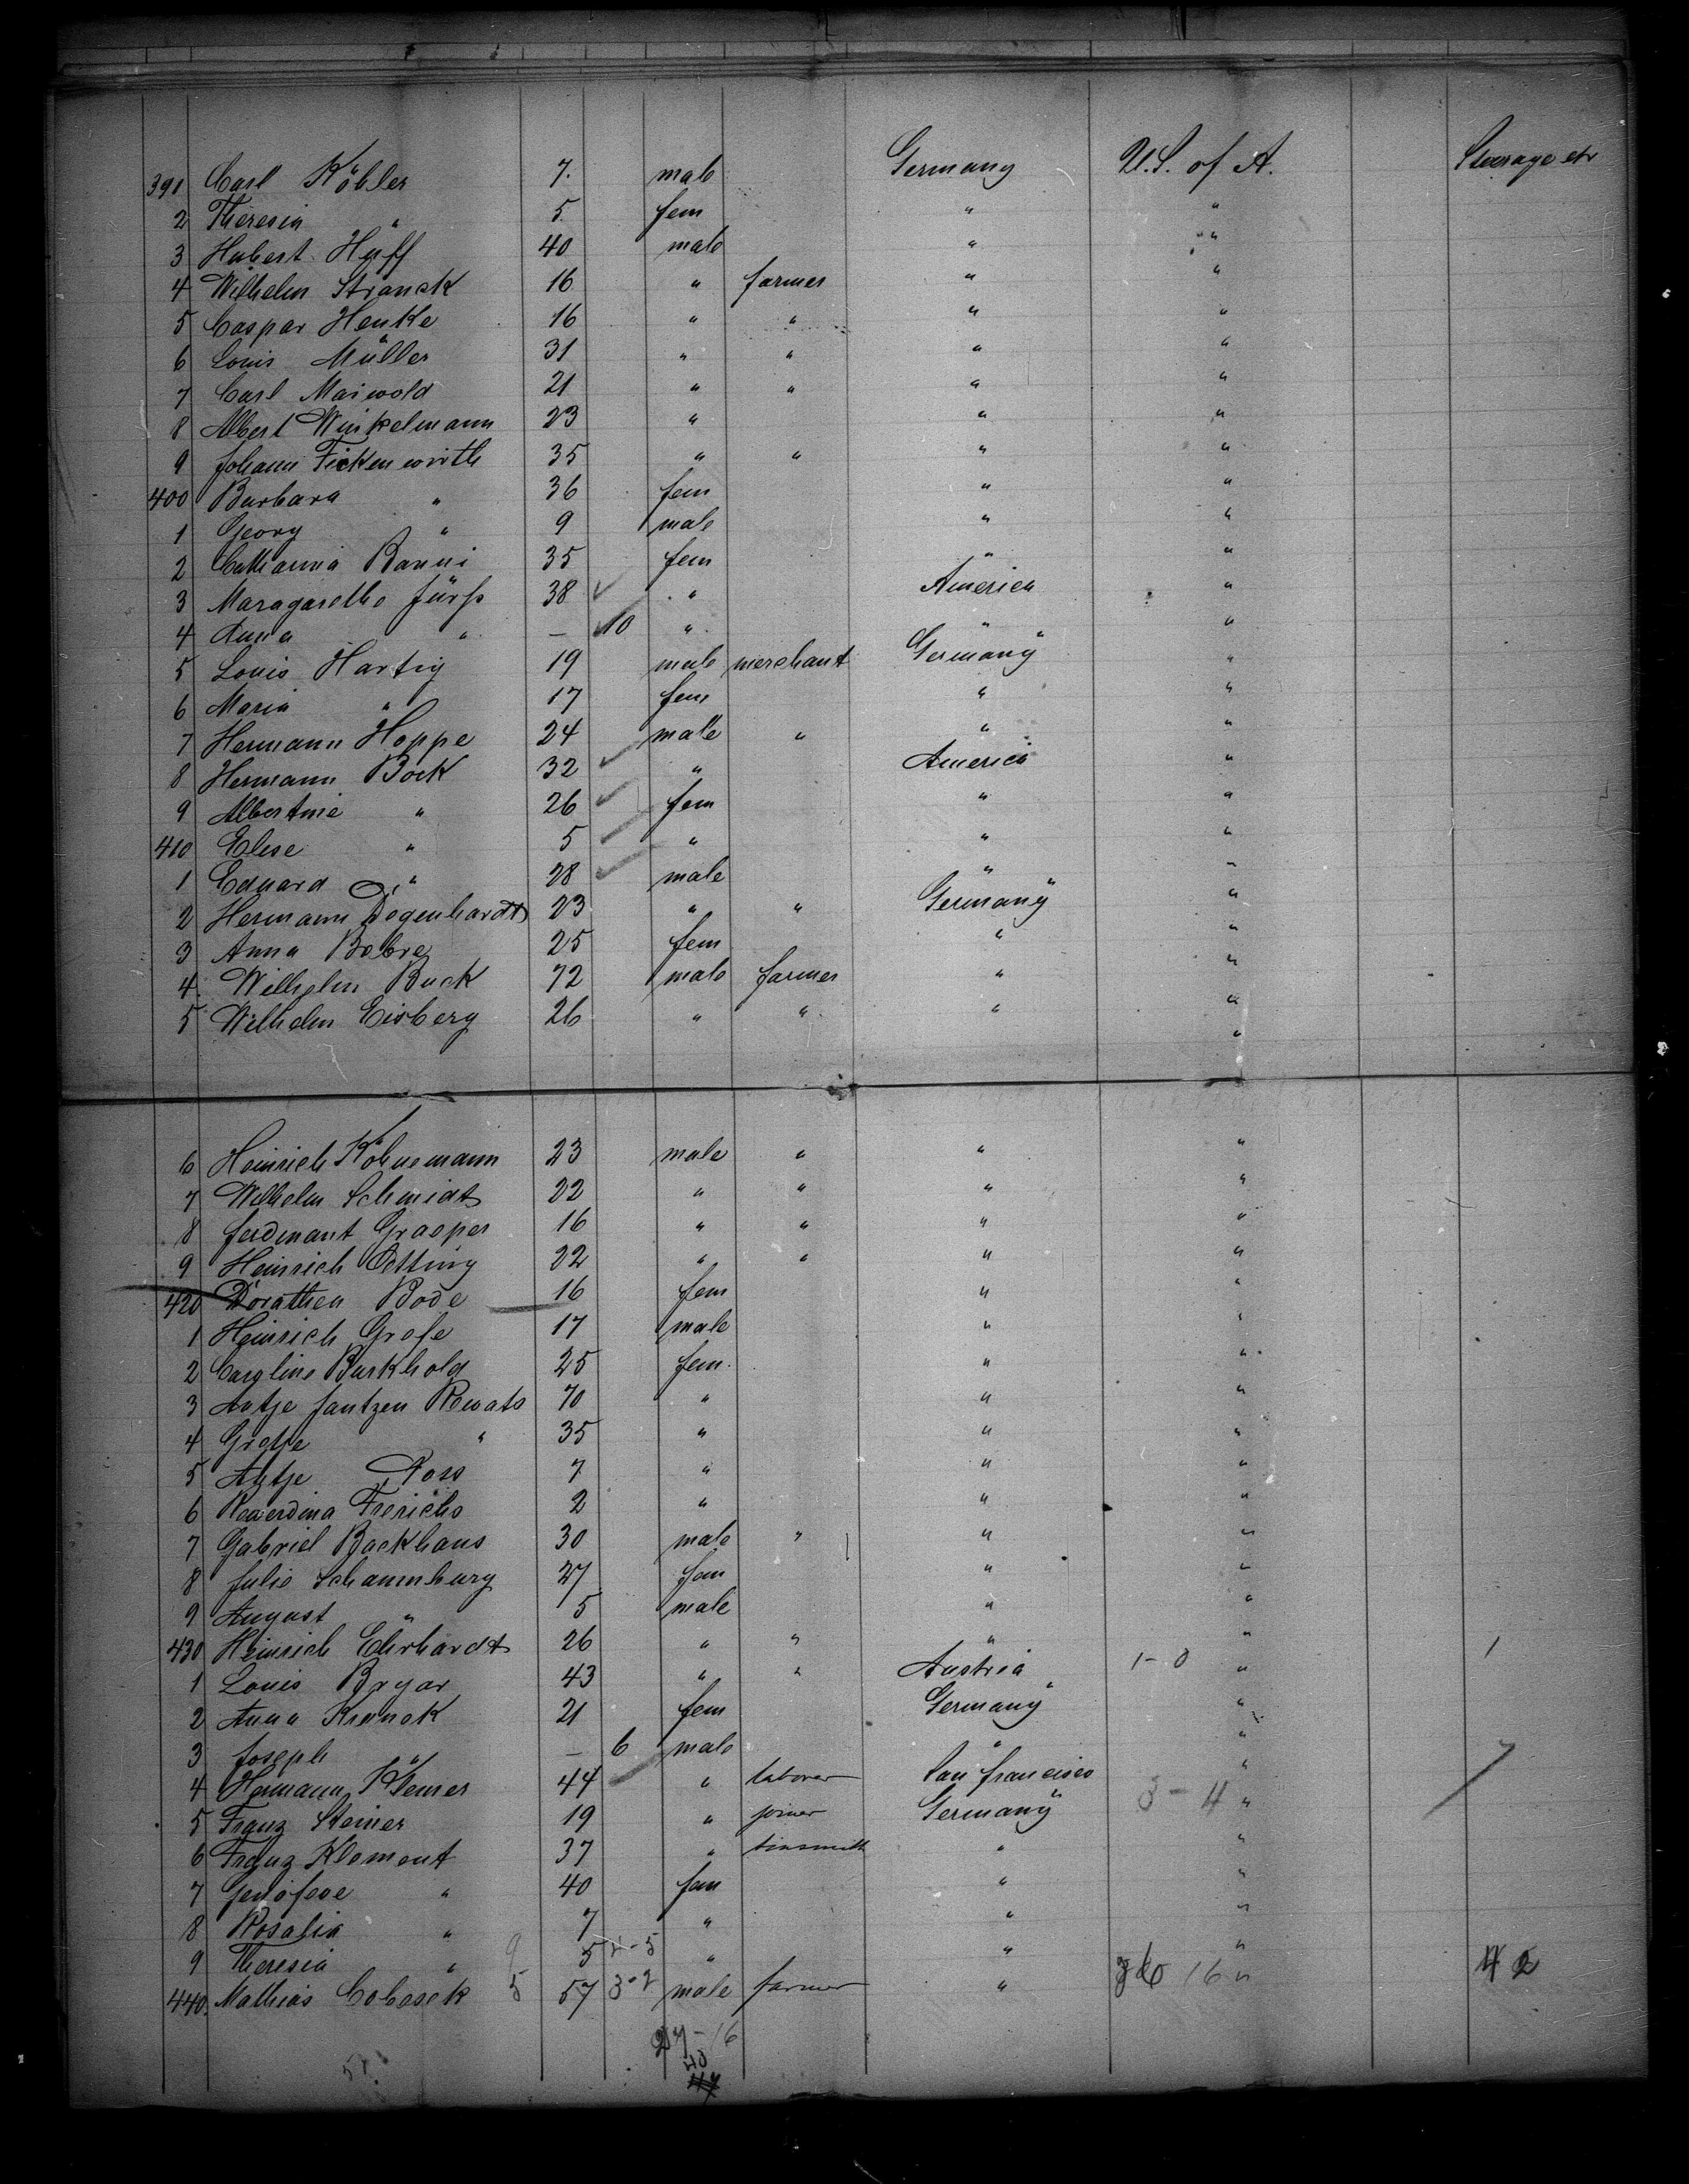 391 Carl Köbler 7. male Germany U.S. of A. Steerage
2 Theresia " 5 fem " "
3 Hubert Huff 40 male " "
4 Wilhelm Stranek 16 " farmer " "
5 Caspar Henke 16 " " " "
6 Louis Müller 31 " " " "
7 Carl Maiwold 21 " " " "
8 Albert Winkelmann 23 " " "
9 Johann Fickenwirth 35 " " " "
400 Barbara " 36 fem " "
1 Georg " 9 male " "
2 Catharina Banni 35 fem " "
3 Maragarethe Jürß 38 " America "
4 Anna " — 10 " " "
5 Louis Hartig 19 male merchant Germany "
6 Maria " 17 fem " "
7 Hermann Hoppe 24 male " " "
8 Hermann Bock 32 " America "
9 Albertine " 26 fem " "
410 Elise " 5 " " "
1 Eduard " 28 male " "
2 Hermann Degenhardt 23 " " Germany "
3 Anna Bebre 25 fem " "
4. Wilhelm Buck 72 male farmer " "
5 Wilhelm Eisberg 26 " " " "
"
6 Heinrich Köhnemann 23 male " " "
7 Wilhelm Schmidt 22 " " " "
8 Ferdinant Graeper 16 " " " "
9 Heinrich Oetting 22 " " " "
420 Dorathea Bode 16 fem " "
1 Heinrich Grefe 17 male " "
2 Caroline Burkhold 25 fem. " "
3 Antje Jantzen Rewats 70 " " "
4 Gretje " 35 " " "
5 Antje Poss 7 " " "
6 Frerichs 2 " " "
7 Gabriel Backhaus 30 male " " "
8 Julie Schaumburg 27 fem " "
9 August " 5 male " "
430 Heinrich Ehrhardt 26 " " " "
1 Louis Bryar 43 " " Austria 1-0 " 1
2 Anna Kranek 21 fem Germany "
3 Joseph " — 6 male " "
4 Hermann Klemer 44 " laborer San Francisco "
5 Franz Steiner 19 " joiner Germany 3-4 "
6 Franz Klement 37 " tinsmith " "
7 Genofeve " 40 fem " "
8 Rosalia " 7 " " "
9 Theresia " 9 5 4-5 " " "
440. Mathias Cobosek 5 57 3-2 male farmer " 16 " 2
27-16